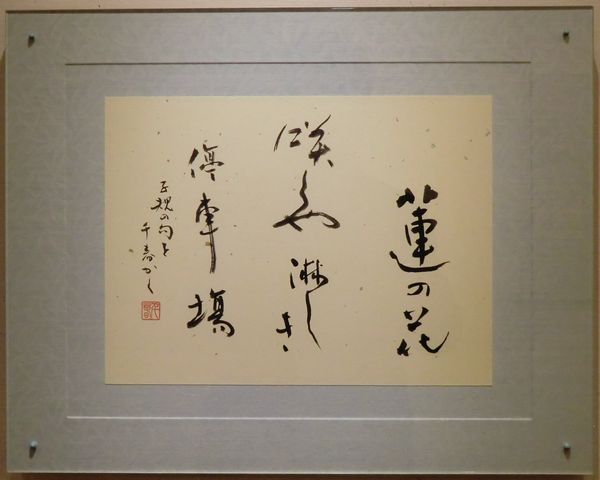 蓮の花
咲くや淋しき
停車場
子規の句を
千寿かく